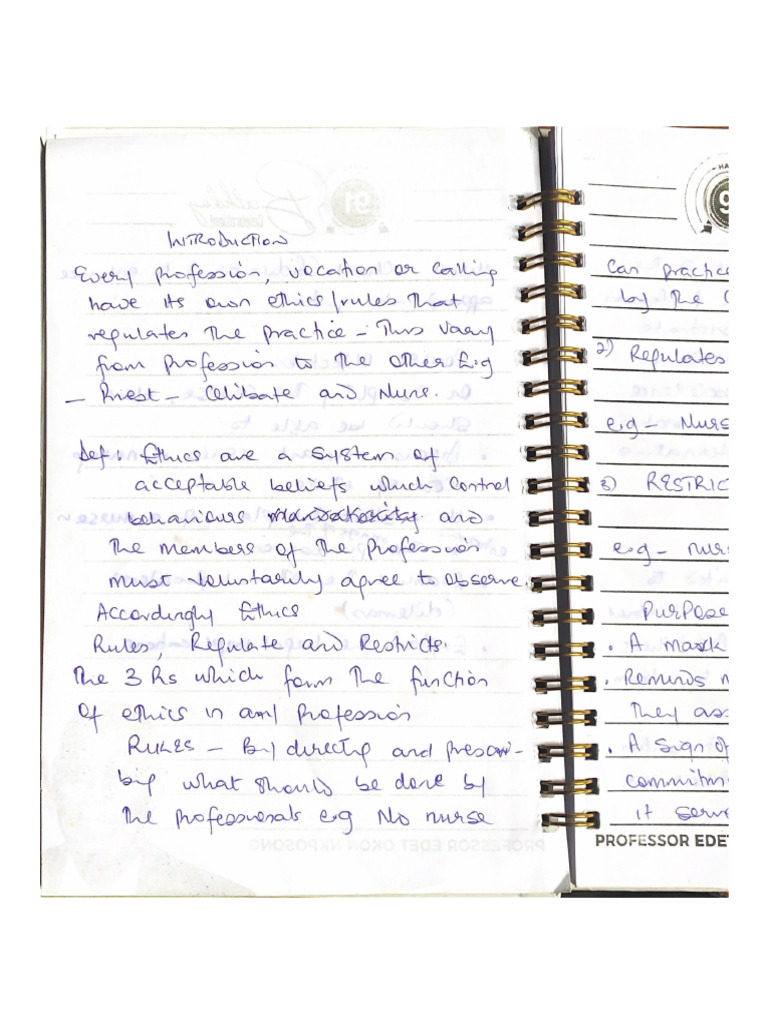 INTRODUCTION
Every profession, vocation or calling
have its own ethics/rules that
regulates the practice - This vary
from profession to the other E.g
- Priest - Celibate and Nuns.
Def: Ethics are a system of
acceptable beliefs which control
behaviours and
the members of the profession
must voluntarily agree to observe.
Accordingly Ethics
Rules, Regulate and Restricts.
The 3 Rs which form the function
Of ethics in any profession
RULES - By directing and prescri-
bing what should be done by
the professionals e.g No nurse
can practice
by the
2) Regulates
e.g - Nurs
3) RESTRIC
e.g - nurs
PURPOSE
• A mark
• Reminds m
They ass
• A sign of
commitm
it serv
PROFESSOR EDET